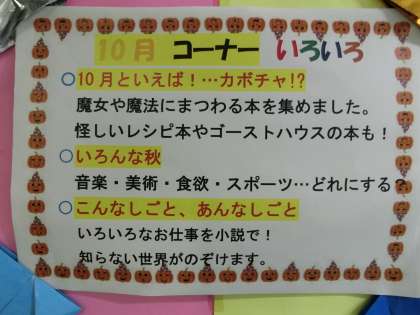 10月 コーナー いろいろ
○10月といえば！…カボチャ!?
魔女や魔法にまつわる本を集めました。
怪しいレシピ本やゴーストハウスの本も！
○いろんな秋
音楽・美術・食欲・スポーツ…どれにする？
○こんなしごと、あんなしごと
いろいろなお仕事を小説で！
知らない世界がのぞけます。